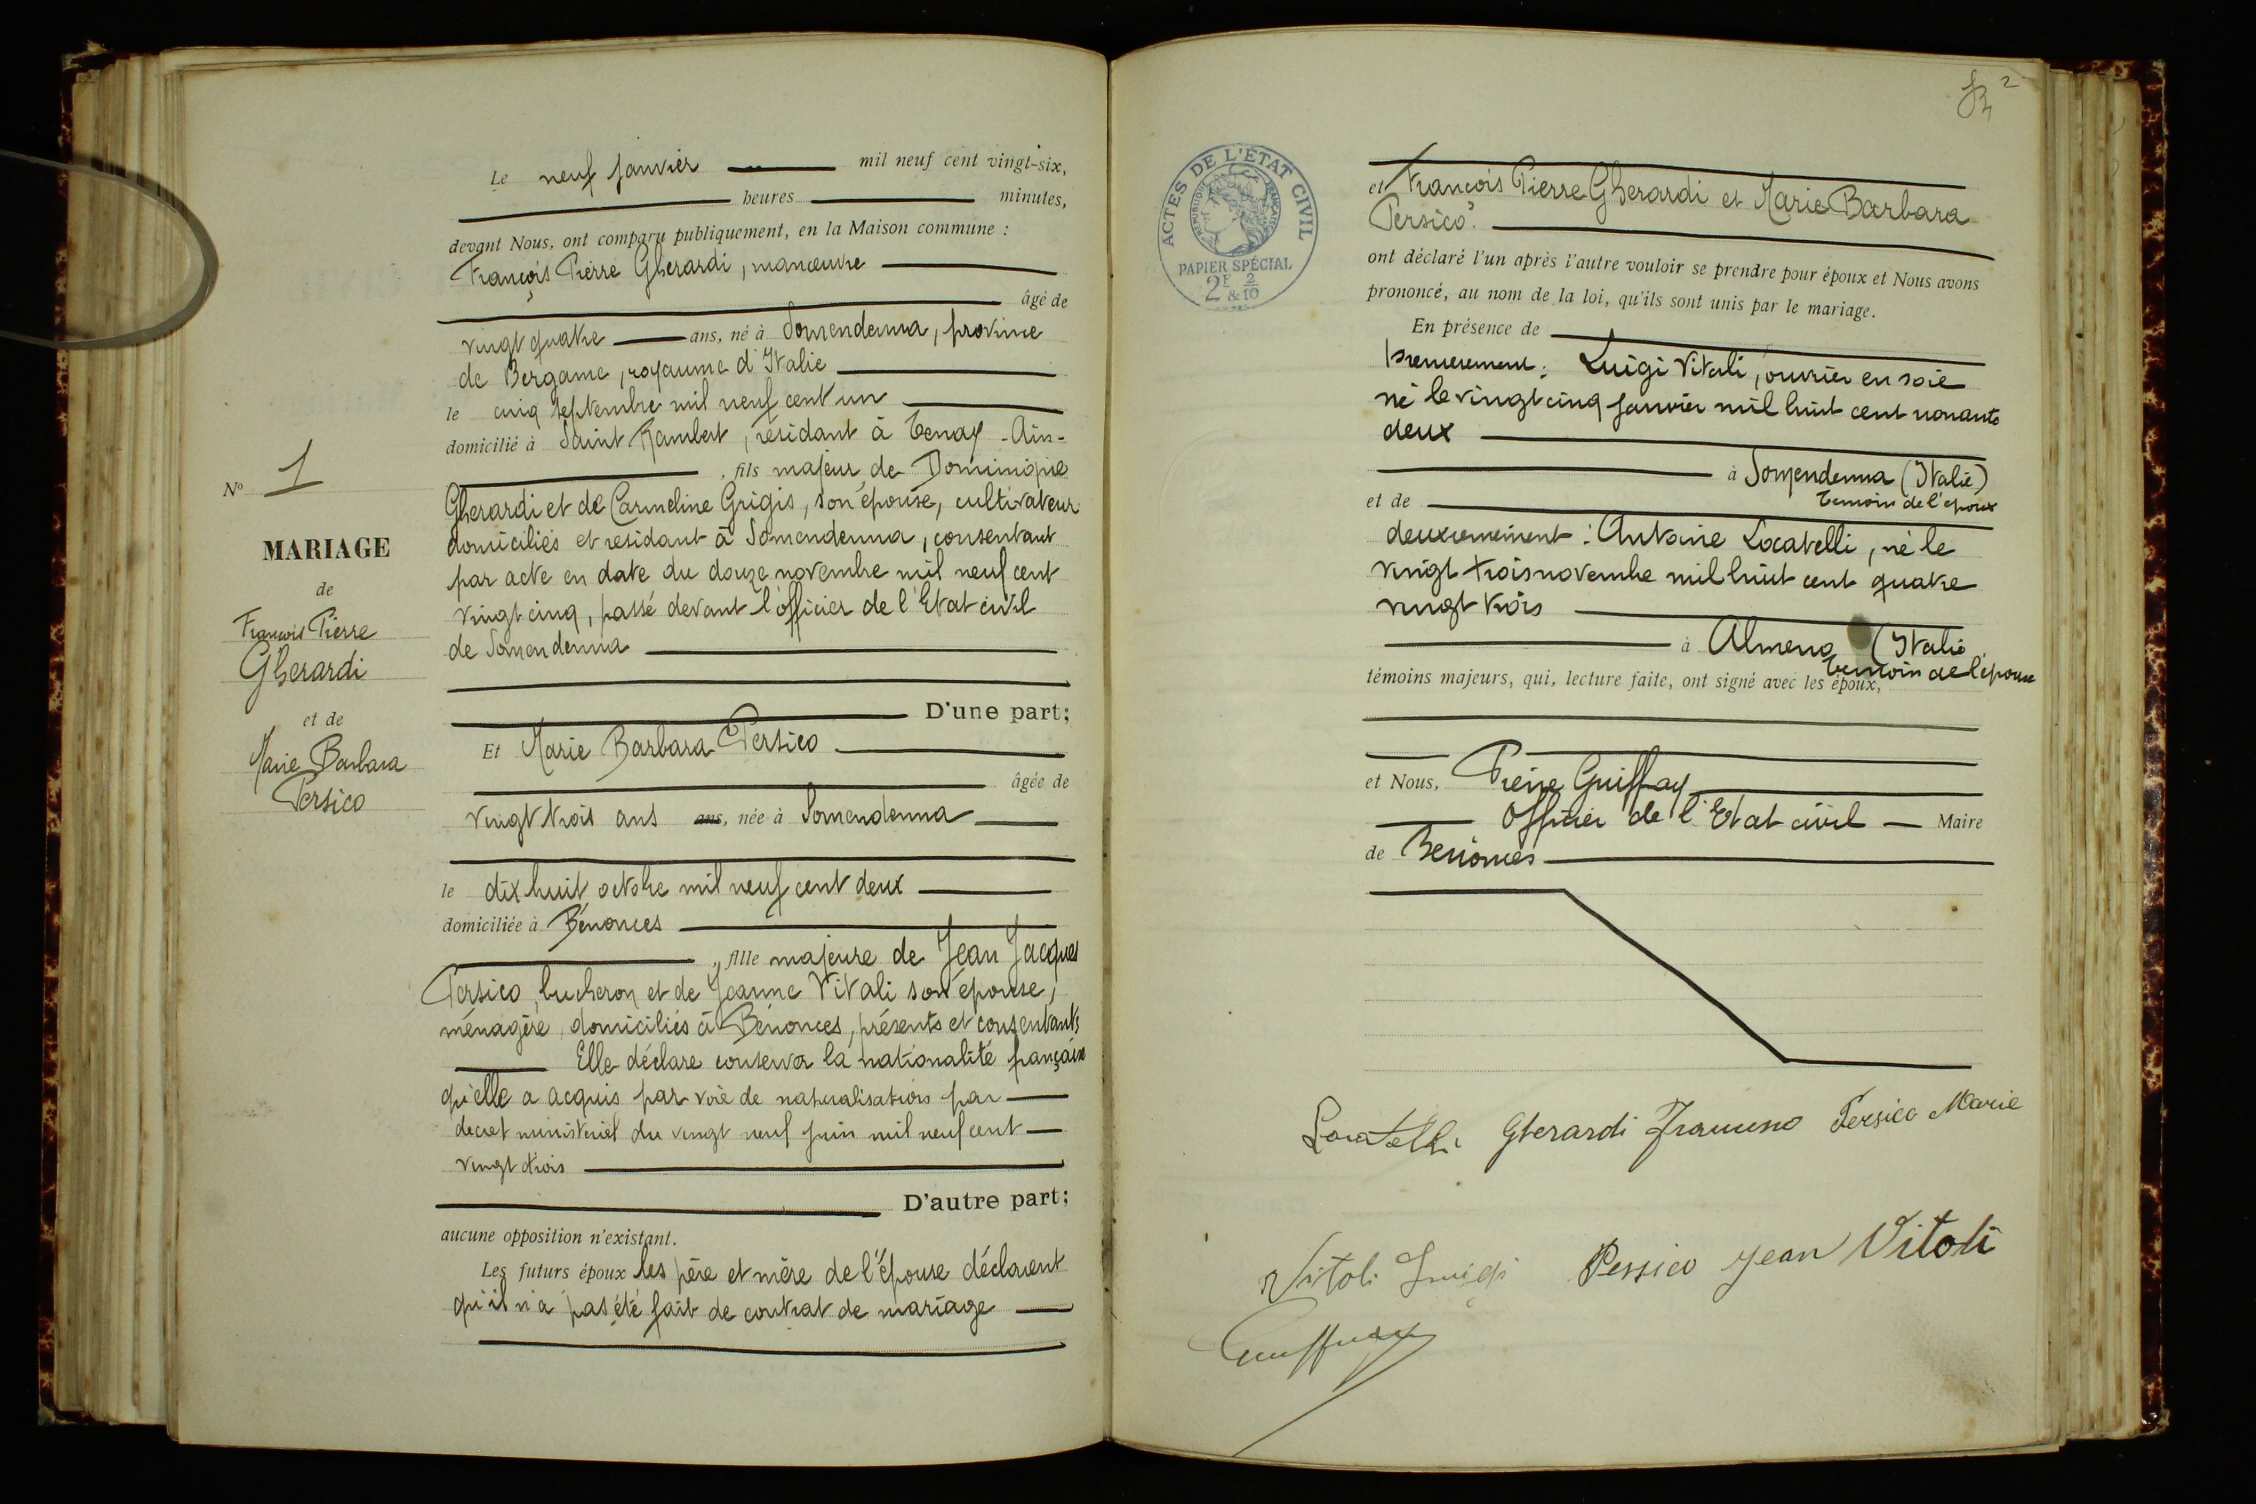 Le neuf janvier mil neuf cent vingt-six,
heures minutes,
devant Nous, ont comparu publiquement, en la Maison commune :
François Pierre Gherardi, manœuvre
âgé de
vingt quatre ans, né à Somendenna, province
de Bergame, royaume d'Italie
le cinq septembre mil neuf cent un
domicilié à Saint Rambert, résidant à Tenay - Ain -
, fils majeur de Dominique
Gherardi et de Carmeline Grigis, son épouse, cultivateurs
domiciliés et résidant à Somendenna, consentant
par acte en date du douze novembre mil neuf cent
vingt cinq, passé devant l'officier de l'Etat civil
de Somendenna
D'une part;
Et Marie Barbara Persico
âgée de
vingt trois ans ans, née à Somendenna
le dix huit octobre mil neuf cent deux
domiciliée à Bénonces
, fille majeure de Jean Jacques
Persico, bucheron et de Jeanne Vitali son épouse,
ménagère, domiciliés à Bénonces, présents et consentants
Elle déclare conserver la nationalité française
qu'elle a acquis par voie de naturalisation par
decret ministeriel du vingt neuf juin mil neuf cent
vingt trois
D'autre part;
aucune opposition n'existant.
Les futurs époux les père et mère de l'épouse déclarent
qu'il n'a pas été fait de contrat de mariage
No 1
MARIAGE
de
François Pierre
Gherardi
et de
Marie Barbara
Persico
2
ACTES DE L'ÉTAT CIVIL
RÉPUBLIQUE FRANÇAISE
PAPIER SPÉCIAL
2F & 2/10
et François Pierre Gherardi et Marie Barbara
Persico
ont déclaré l'un après l'autre vouloir se prendre pour époux et Nous avons
prononcé, au nom de la loi, qu'ils sont unis par le mariage.
En présence de
premierement : Luigi Vitali, ouvrier en soie
né le vingt cinq janvier mil huit cent nonante
deux
à Somendenna (Italie)
et de temoin de l'epoux
deuxiemement : Antoine Locatelli, né le
vingt trois novembre mil huit cent quatre
vingt trois
à Almeno (Italie
temoin de l'épouse
témoins majeurs, qui, lecture faite, ont signé avec les époux,
et Nous, Pierre Guiffray
Officier de l'Etat civil Maire
de Bénonces
Locatelli Gherardi Persico Marie
Vitoli Luigi Persico Jean Vitoli
Guiffray